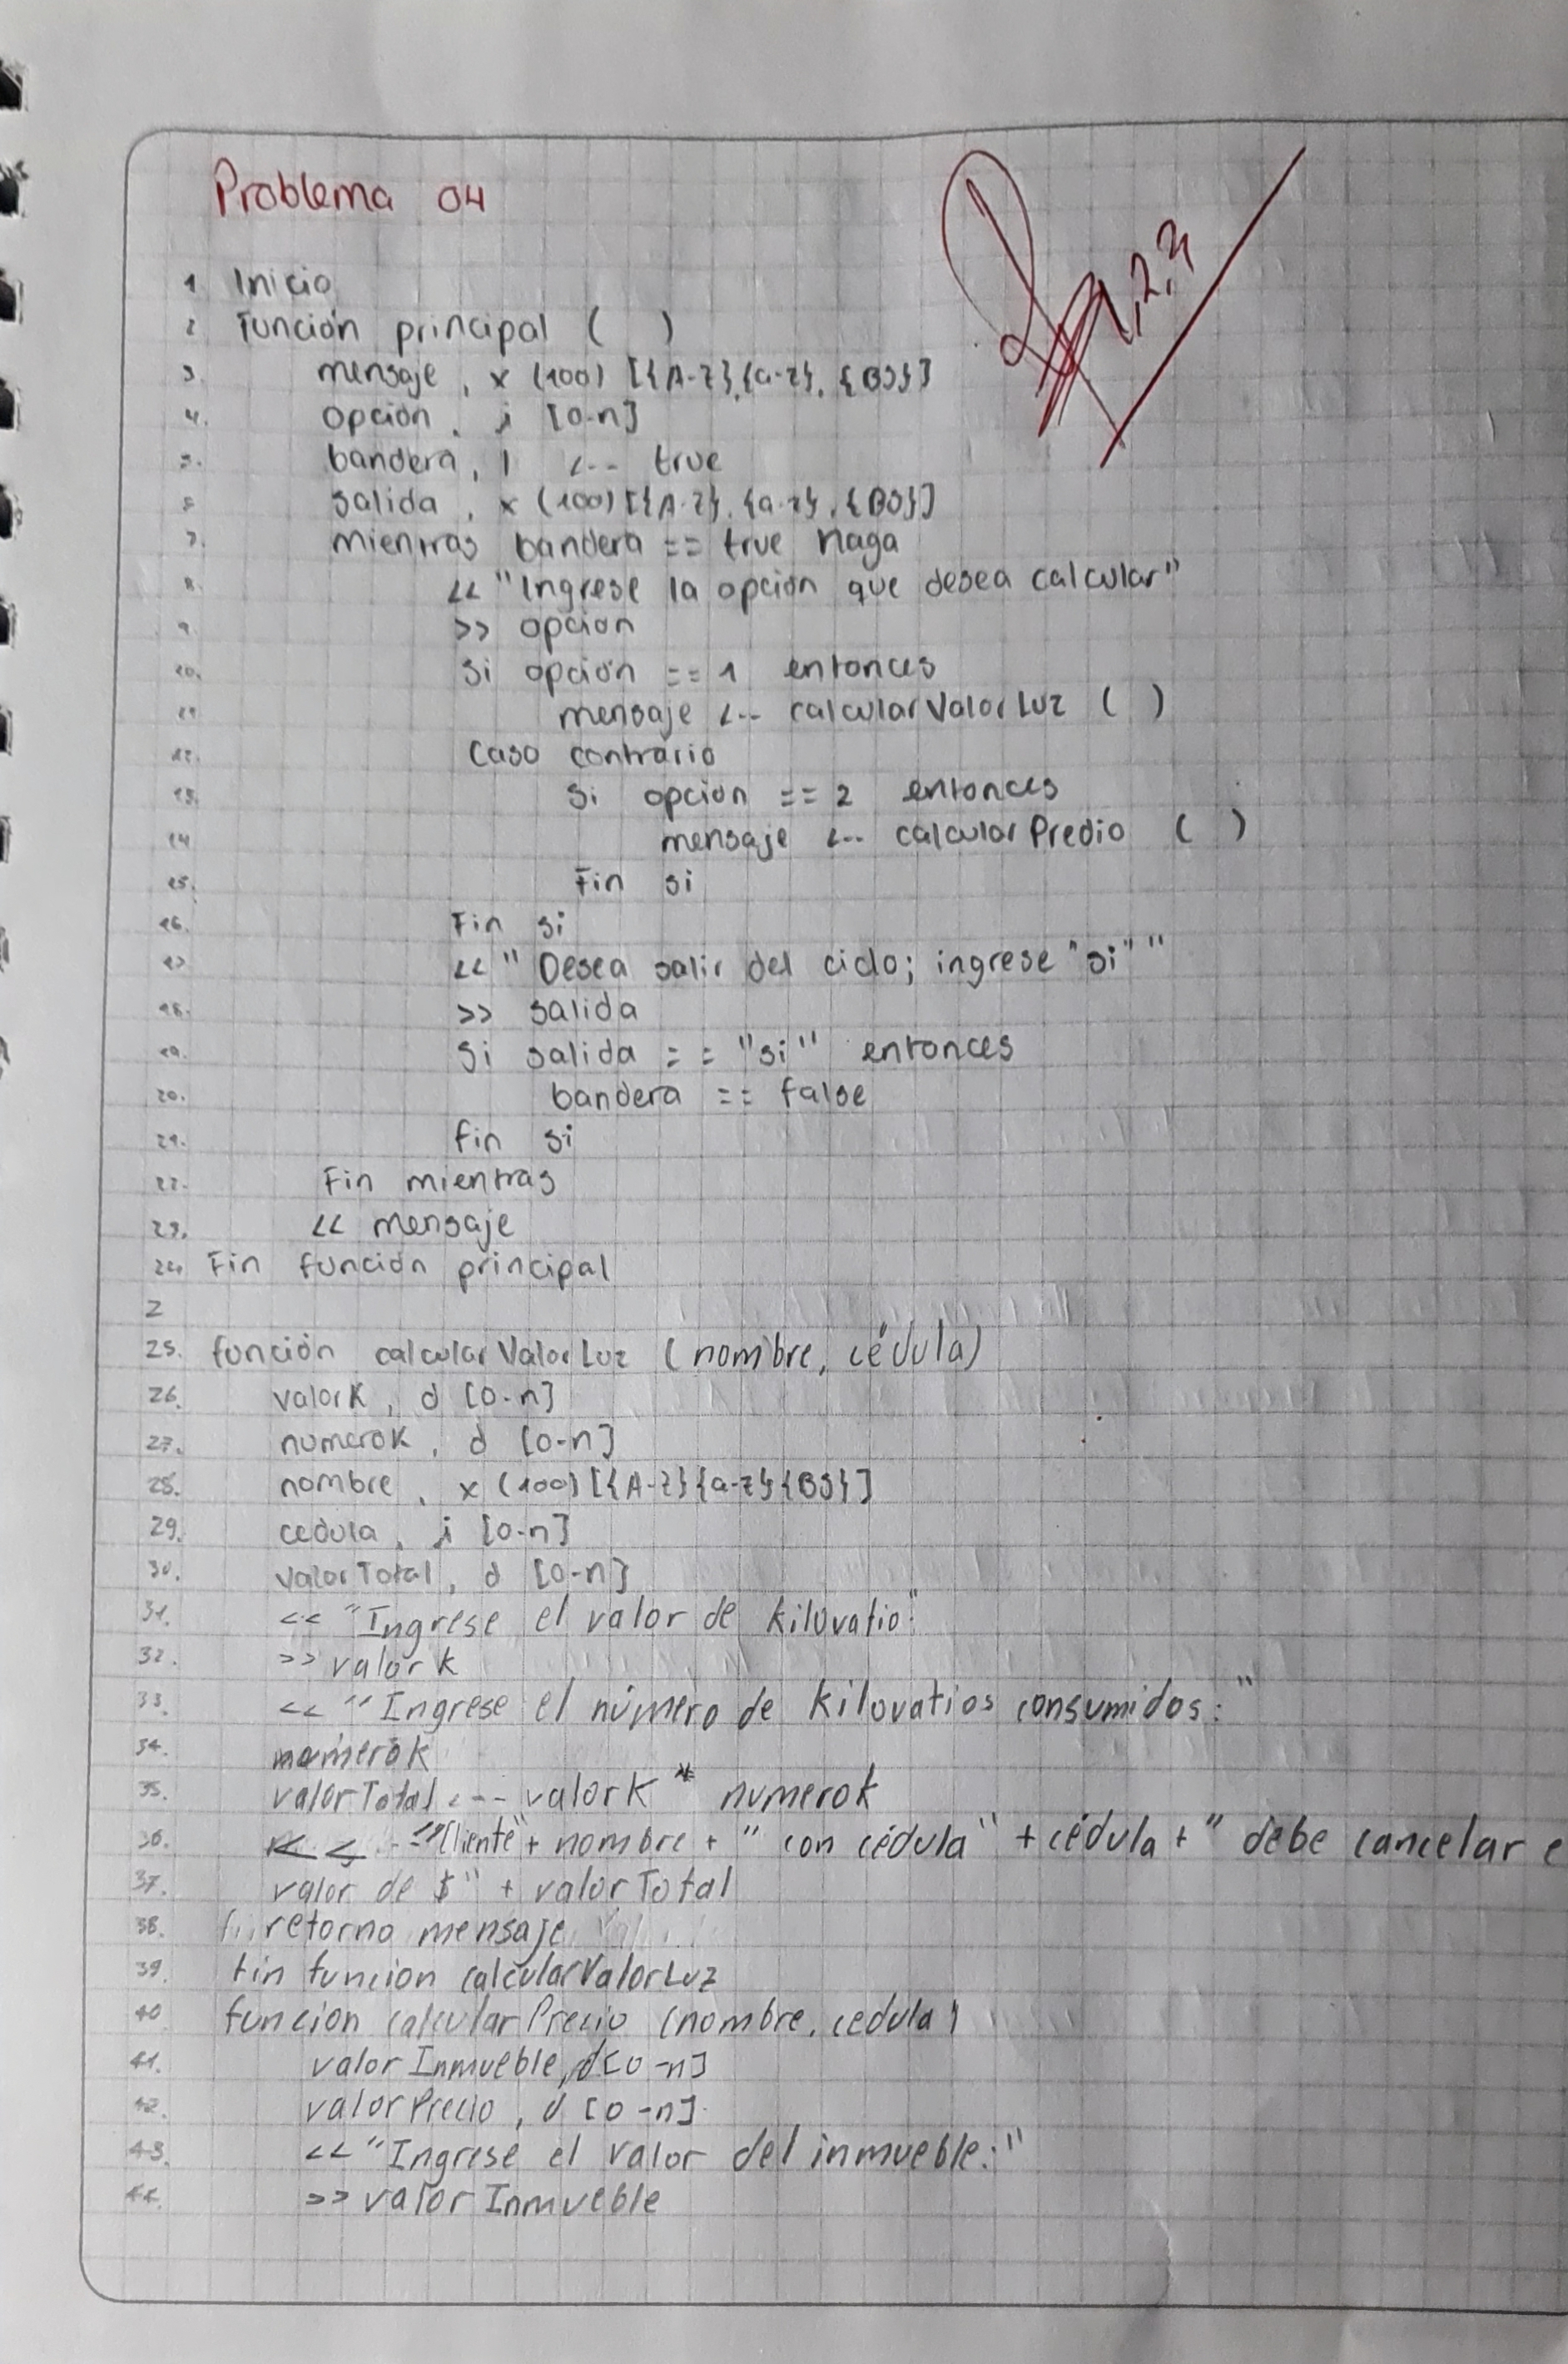 Problema 04
1,2,3
1 Inicio
2 Función principal ( )
3. mensaje, x (100) [{A-Z},{a-z}, {BS}]
4. opción, i [0-n]
5. bandera, l <-- true
6 salida, x (100) [{A-Z}, {a-z}, {BS}]
7. mientras bandera == true haga
8. << "Ingrese la opción que desea calcular"
9. >> opción
10. Si opción == 1 entonces
11 mensaje <-- calcularValorLuz ( )
12. Caso contrario
13. Si opción == 2 entonces
14 mensaje <-- calcularPredio ( )
15. Fin si
16. Fin si
17 << "Desea salir del ciclo; ingrese "si""
18. >> salida
19. Si salida == "si" entonces
20. bandera == false
21. fin si
22. Fin mientras
23. << mensaje
24 Fin función principal
2
25. función calcularValorLuz (nombre, cédula)
26. valorK, d [0-n]
27. numeroK, d [0-n]
28. nombre, x (100) [{A-Z}{a-z}{BS}]
29. cedula, i [0-n]
30. valorTotal, d [0-n]
31. << "Ingrese el valor de kilovatio:"
32. >> valork
33. << "Ingrese el número de kilovatios consumidos:"
34. numerok
35. valorTotal <-- valorK * numerok
36. "Cliente" + nombre + " con cédula" + cédula + " debe cancelar e
37. valor de $" + valorTotal
38. retorno mensaje
39. fin funcion calcularValorLuz
40 funcion calcularPrecio (nombre, cedula)
41. valorInmueble, d [0-n]
42. valorPrecio, d [0-n]
43. << "Ingrese el valor del inmueble:"
44. >> valorInmueble